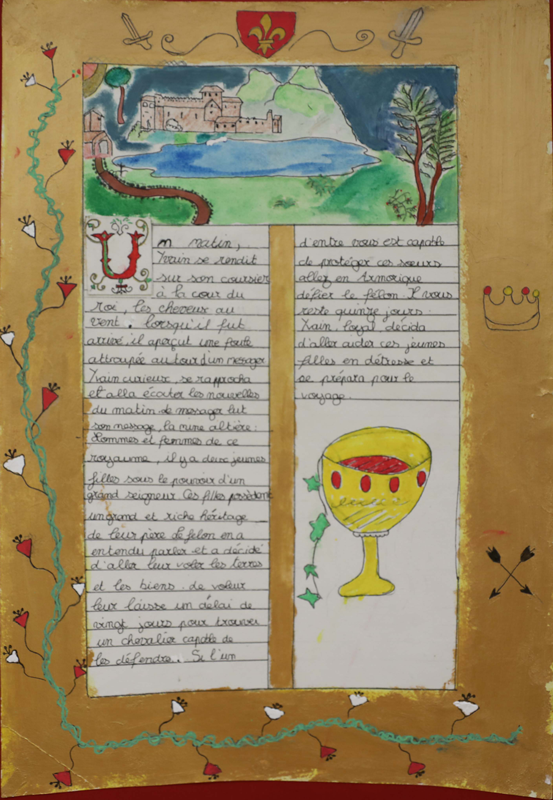 Un matin,
Yvain se rendit
sur son coursier
à la cour du
roi, les cheveux au
vent. lorsqu'il fut
arrivé il aperçut une foule
attroupée autour d'un messager
Yvain curieux, se rapprocha
et alla écouter les nouvelles
du matin. Le messager lut
son message, la mine altière:
Hommes et femmes de ce
royaume, il y a deux jeunes
filles sous le pouvoir d'un
grand seigneur Ces filles possèdent
un grand et riche héritage
de leur père. Le felon en a
entendu parler et a décidé
d'aller leur voler les terres
et les biens. ce voleur
leur laisse un délai de
vingt jours pour trouver
un chevalier capable de
les défendre. Si l'un
d'entre vous est capable
de protéger ces soeurs
allez en Armorique
défier le félon. Il vous
reste quinze jours.
Yvain, loyal décida
d'aller aider ces jeunes
filles en détresse et
se prépara pour le
voyage.